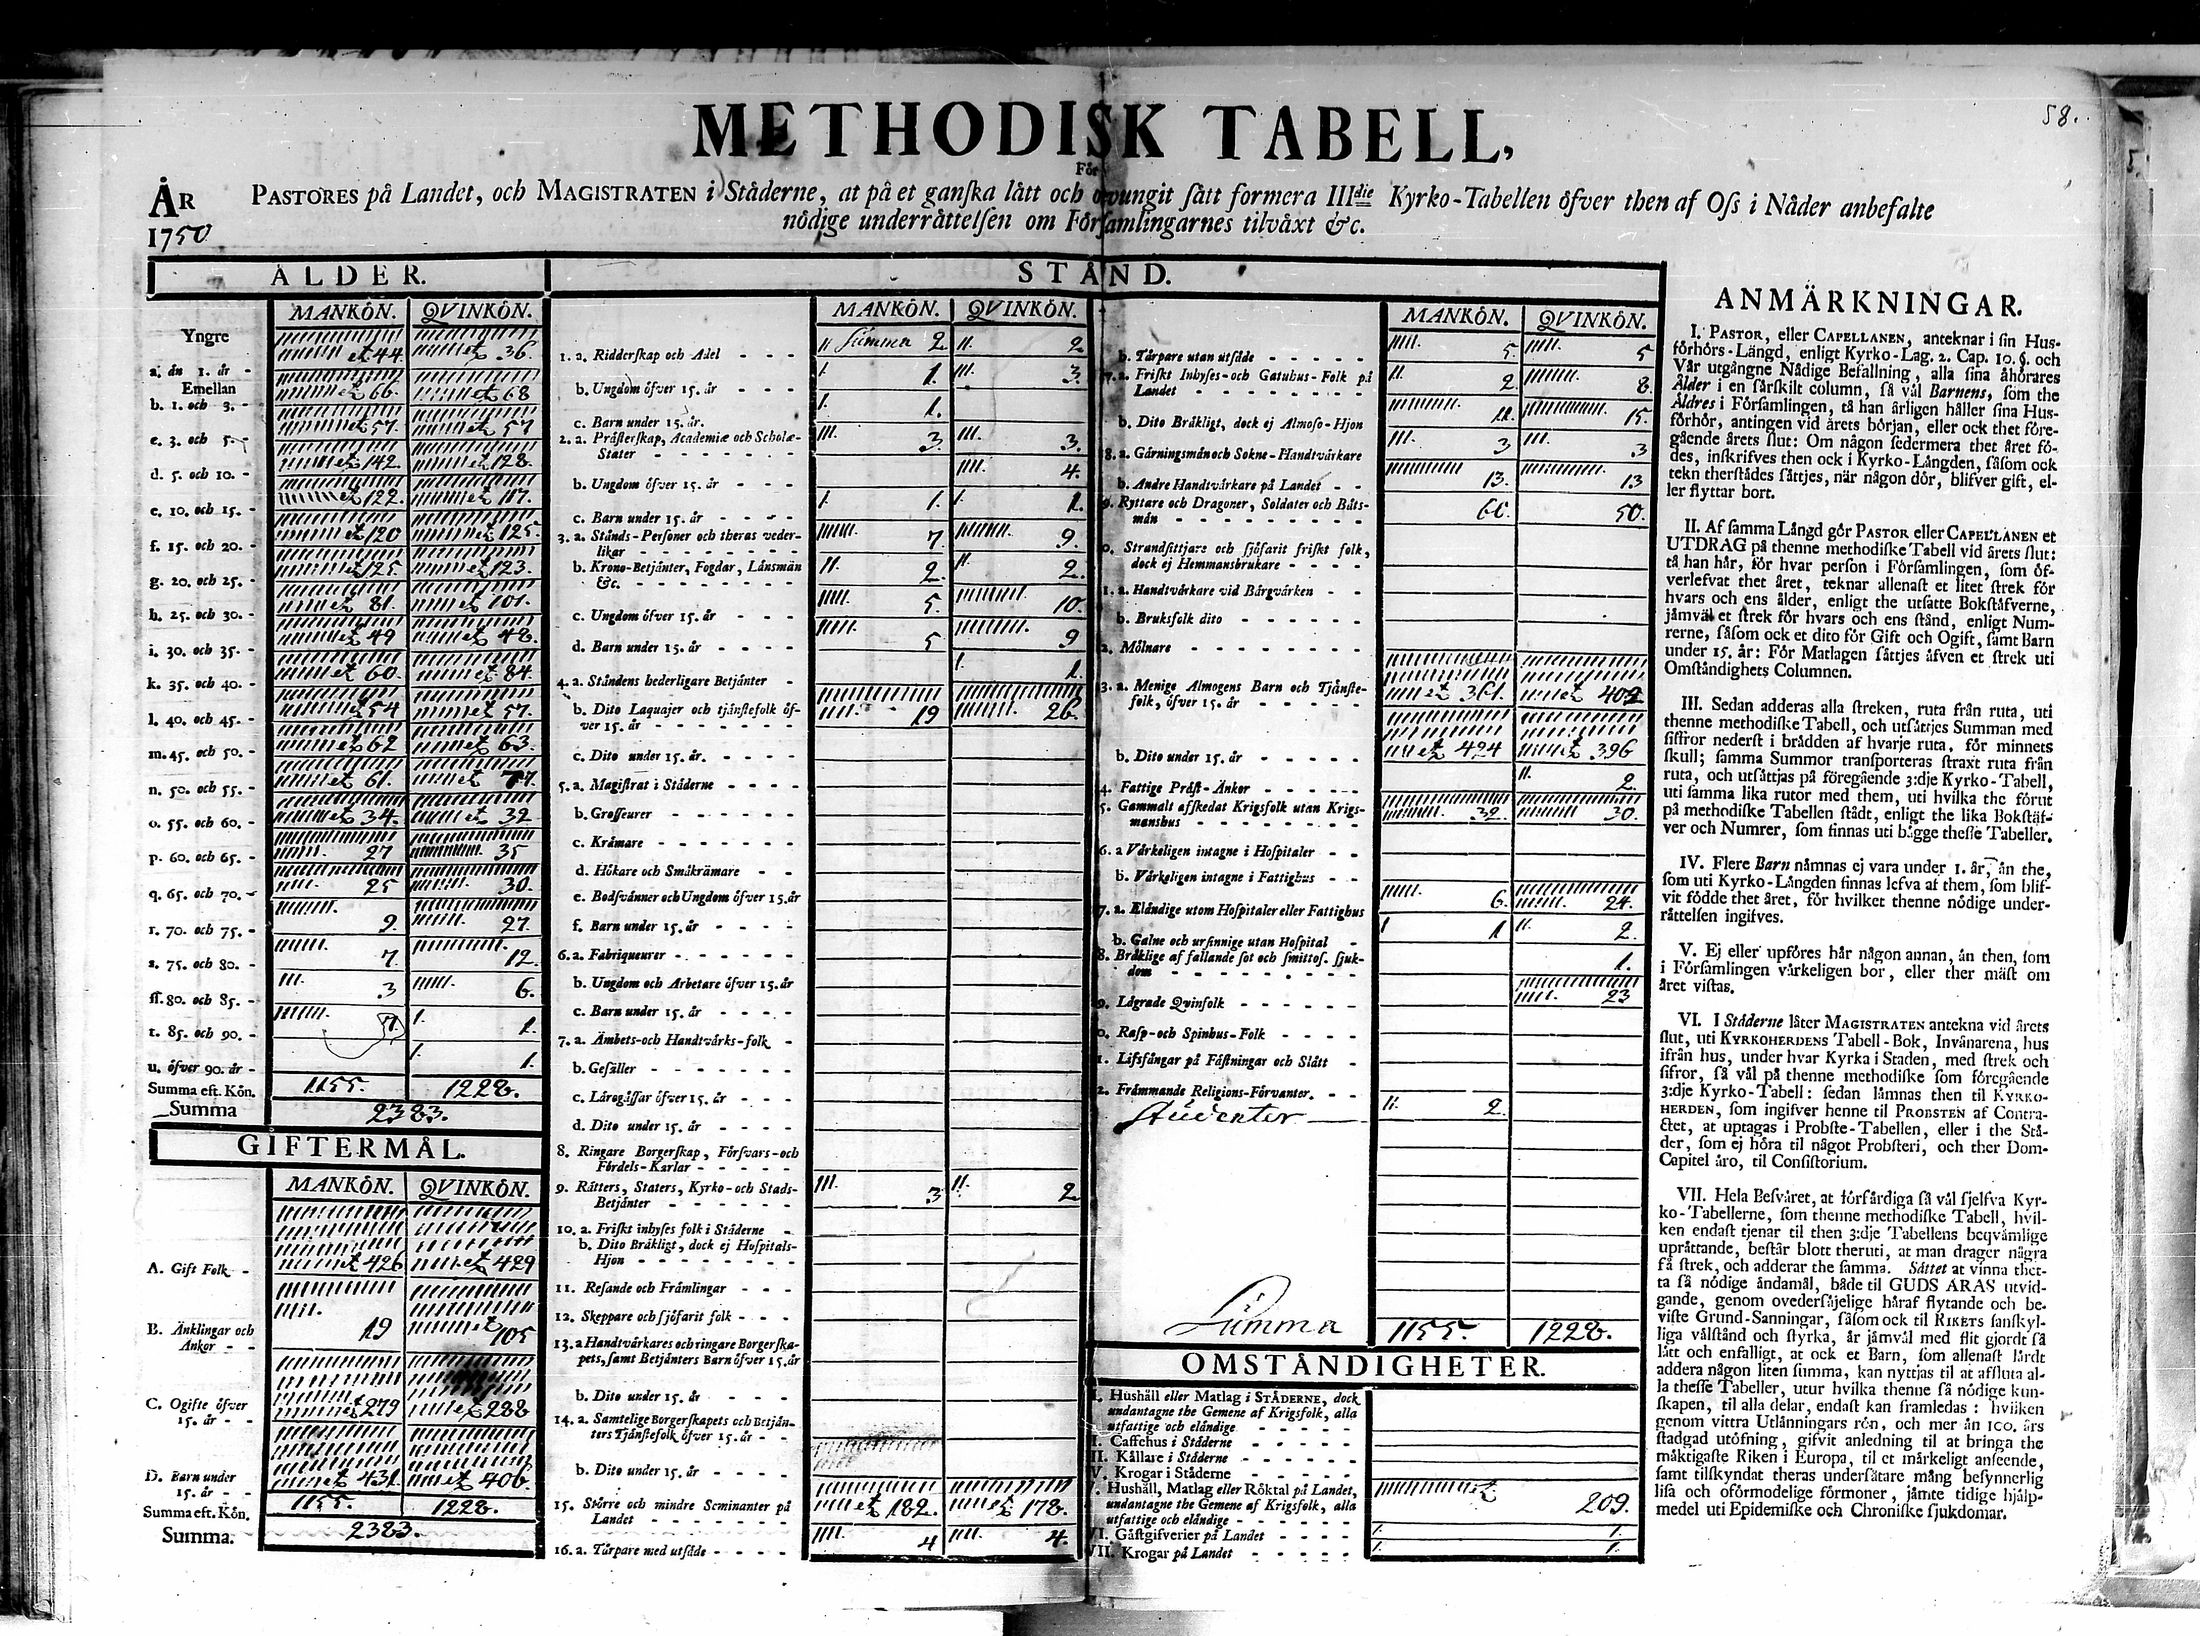 58.
METHODISK TABELL,
För
ÅR 1750
PASTORES på Landet, och MAGISTRATEN i Städerne, at på et ganska lått och otvungit sått formera IIIdie Kyrko-Tabellen öfver then af Oss i Nåder anbefalte
nödige underråttelsen om Församlingarnes tilvåxt &c.
ÅLDER.
MANKÖN. QVINKÖN.
Yngre
a. ån 1. år - et 44. et 36.
Emellan
b. 1. och 3. - et 66. et 68
c. 3. och 5. - et 57. et 57
d. 5. och 10. - et 142. et 128.
e. 10. och 15. - et 122. et 117.
f. 15. och 20. - et 120 et 125.
g. 20. och 25. - et 125. et 123.
h. 25. och 30. - et 81. et 101.
i. 30. och 35. - et 49 et 48.
k. 35. och 40. - et 60. et 84.
l. 40. och 45. - et 54 et 57.
m. 45. och 50. - et 62 et 63.
n. 50. och 55. - et 61. et 77.
o. 55. och 60. - et 34. et 32
p. 60. och 65. - 27 35
q. 65. och 70. - 25 30.
r. 70. och 75. - 9. 27.
s. 75. och 80. - 7. 12.
ss. 80. och 85. - 3 6.
t. 85. och 90. - 7. 1.
u. öfver 90. år - 1.
Summa eft. Kön. 1155. 1228.
Summa 2383.
GIFTERMÅL.
MANKÖN. QVINKÖN.
A. Gift Folk - et 426 et 429
B. Änklingar och
Änkor - - 19 et 105
C. Ogifte öfver
15. år - - et 279 et 288
D. Barn under
15. år - - et 431. et 406.
Summa eft. Kön. 1155. 1228.
Summa. 2383.
STÅND.
MANKÖN. QVINKÖN.
1. a. Ridderskap och Adel - - - Summa 2. 2
b. Ungdom öfver 15. år - - - 1. 3.
c. Barn under 15. år. 1.
2. a. Pråsterskap, Academiæ och Scholæ-
Stater - - - - - - - 3 3.
b. Ungdom öfver 15. år - - - 4.
c. Barn under 15. år - - - - 1. 1.
3. a. Stånds-Personer och theras veder-
likar - - - - - - - 7. 9.
b. Krono-Betjänter, Fogdar, Lånsmån
&c. - - - - - - - - 2. 2.
c. Ungdom öfver 15. år - - - 5. 10.
d. Barn under 15. år - - - - 5 9
4. a. Ståndens hederligare Betjänter - 1.
b. Dito Laquajer och tjånstefolk öf-
ver 15. år - - - - - - - 19 26.
c. Dito under 15. år. - - - -
5. a. Magistrat i Ståderne - - - -
b. Grosseurer - - - - - - -
c. Kråmare - - - - - - -
d. Hökare och Småkrämare - -
e. Bodsvånner och Ungdom öfver 15. år
f. Barn under 15. år - - - -
6. a. Fabriqueurer - - - - - -
b. Ungdom och Arbetare öfver 15. år
c. Barn under 15. år - - - -
7. a. Åmbets-och Handtvårks-folk -
b. Gesåller - - - - - - -
c. Låregåssar öfver 15. år - - -
d. Dito under 15. år - - - -
8. Ringare Borgerskap, Försvars-och
Fördels-Karlar - - - - -
9. Råtters, Staters, Kyrko-och Stads-
Betjänter - - - - - - 3 2
10. a. Friskt inhyses folk i Ståderne -
b. Dito Bråkligt, dock ej Hospitals-
Hjon - - - - - - - -
11. Resande och Fråmlingar - - -
12. Skeppare och sjöfarit folk - - -
13. a Handtvårkares och ringare Borgerska-
pets, samt Betjänters Barn öfver 15. år
b. Dito under 15. år - - -
14. a. Samtelige Borgerskapets och Betjån-
ters Tjånstefolk öfver 15. år - -
b. Dito under 15. år - - - -
15. Större och mindre Hemmanter på
Landet - - - - - - - et 182. et 178.
16. a. Tårpare med utsåde - - - - 4 4.
MANKÖN. QVINKÖN.
b. Tårpare utan utsåde - - - - - 5. 5
7. a. Friskt Inhyses-och Gatuhus-Folk på
Landet - - - - - - - 2 8
b. Dito Bråkligt, dock ej Almoso-Hjon 11. 15.
8. a. Gårningsmån och Sokne-Handtvårkare 3 3
b. Andre Handtvårkare på Landet - - 13. 13
9. Ryttare och Dragoner, Soldater och Båts-
mån - - - - - - - - - 60. 50.
0. Strandsittjare och sjöfarit friskt folk,
dock ej Hemmansbrukare - - - -
1. a. Handtvårkare vid Bårgvårken - -
b. Bruksfolk dito - - - - - -
2. Mölnare - - - - - - - -
3. a. Menige Almogens Barn och Tjånste-
folk, öfver 15. år - - - - - et 361. et 402
b. Dito under 15. år - - - - - et 424 et 396
4. Fattige Pråst-Ånkor - - - - - 2.
5. Gammalt afskedat Krigsfolk utan Krigs-
manshus - - - - - - - - 32. 30.
6. a Vårkeligen intagne i Hospitaler - -
b. Vårkeligen intagne i Fattighus - -
7. a. Elåndige utom Hospitaler eller Fattighus 6. 24.
b. Galne och ursinnige utan Hospital - 1 2.
8. Bråklige af fallande sot och smittos. sjuk-
dom - - - - - - - - - 1.
9. Lågrade Qvinfolk - - - - - - 23
0. Rasp-och Spinhus-Folk - - - - -
1. Lifsfångar på Fåstningar och Slått -
2. Fråmmande Religions-Förvanter. - -
Studenter 2.
Summa 1155. 1228.
OMSTÅNDIGHETER.
I. Hushåll eller Matlag i STÅDERNE, dock
undantagne the Gemene af Krigsfolk, alla
utfattige och elåndige - - - - -
I. Caffehus i Ståderne - - - - -
II. Kållare i Ståderne - - - - -
V. Krogar i Ståderne - - - - -
Hushåll, Matlag eller Röktal på Landet,
undantagne the Gemene af Krigsfolk, alla
utfattige och elåndige - - - - - 209.
VI. Gåstgifverier på Landet - - - - 1.
VII. Krogar på Landet - - - - - 1.
ANMÄRKNINGAR.
I. PASTOR, eller CAPELLANEN, anteknar i sin Hus-
förhörs-Långd, enligt Kyrko-Lag. 2. Cap. 10. §. och
Vår utgångne Nådige Befallning, alla sina åhörares
Ålder i en sårskilt column, så vål Barnens, som the
Åldres i Församlingen, tå han årligen håller sina Hus-
förhör, antingen vid årets början, eller ock thet före-
gående årets slut: Om någon sedermera thet året fö-
des, inskrifves then ock i Kyrko-Långden, såsom ock
tekn therstådes såttjes, når någon dör, blifver gift, el-
ler flyttar bort.
II. Af samma Långd gör PASTOR eller CAPELLANEN et
UTDRAG på thenne methodiske Tabell vid årets slut:
tå han hår, för hvar person i Församlingen, som öf-
verlefvat thet året, teknar allenast et litet strek för
hvars och ens ålder, enligt the utsatte Bokståfverne,
jåmvål et strek för hvars och ens stånd, enligt Num-
rerne, såsom ock et dito för Gift och Ogift, samt Barn
under 15. år: För Matlagen såttjes åfven et strek uti
Omståndighets Columnen.
III. Sedan adderas alla streken, ruta från ruta, uti
thenne methodiske Tabell, och utsåttjes Summan med
siffror nederst i brådden af hvarje ruta, för minnets
skull; samma Summor transporteras straxt ruta från
ruta, och utsåttjas på föregående 3:dje Kyrko-Tabell,
uti samma lika rutor med them, uti hvilka the förut
på methodiske Tabellen stådt, enligt the lika Bokståf-
ver och Numrer, som finnas uti bågge thesse Tabeller.
IV. Flere Barn nåmnas ej vara under 1. år, ån the,
som uti Kyrko-Långden finnas lefva af them, som blif-
vit födde thet året, för hvilket thenne nödige under-
råttelsen ingifves.
V. Ej eller upföres hår någon annan, ån then, som
i Församlingen vårkeligen bor, eller ther måst om
året vistas.
VI. I Ståderne låter MAGISTRATEN antekna vid årets
slut, uti KYRKOHERDENS Tabell-Bok, Invånarena, hus
ifrån hus, under hvar Kyrka i Staden, med strek och
sifror, så vål på thenne methodiske som föregående
3:dje Kyrko-Tabell: sedan låmnas then til KYRKO-
HERDEN, som ingifver henne til PROBSTEN af Contra-
ctet, at uptagas i Probste-Tabellen, eller i the Stå-
der, som ej höra til något Probsteri, och ther Dom-
Capitel åro, til Consistorium.
VII. Hela Besvåret, at förfårdiga så vål sjelfva Kyr-
ko-Tabellerne, som thenne methodiske Tabell, hvil-
ken endast tjenar til then 3:dje Tabellens beqvåmlige
upråttande, består blott theruti, at man drager några
få strek, och adderar the samma. Såttet at vinna thet-
ta så nödige åndamål, både til GUDS ÄRAS utvid-
gande, genom ovedersåjelige håraf flytande och be-
viste Grund-Sanningar, såsom ock til RIKETS sanskyl-
liga vålstånd och styrka, år jåmvål med flit gjordt så
lått och enfalligt, at ock et Barn, som allenast lårdt
addera någon liten summa, kan nyttjas til at afsluta al-
la thesse Tabeller, utur hvilka thenne så nödige kun-
skapen, til alla delar, endast kan framledas: hvilken
genom vittra Utlånningars rön, och mer ån 100. års
stadgad utöfning, gifvit anledning til at bringa the
måktigaste Riken i Europa, til et mårkeligt anseende,
samt tilskyndat theras undersåtare mång besynnerlig
lisa och oförmodelige förmoner, jåmte tidige hjålp-
medel uti Epidemiske och Chroniske sjukdomar.